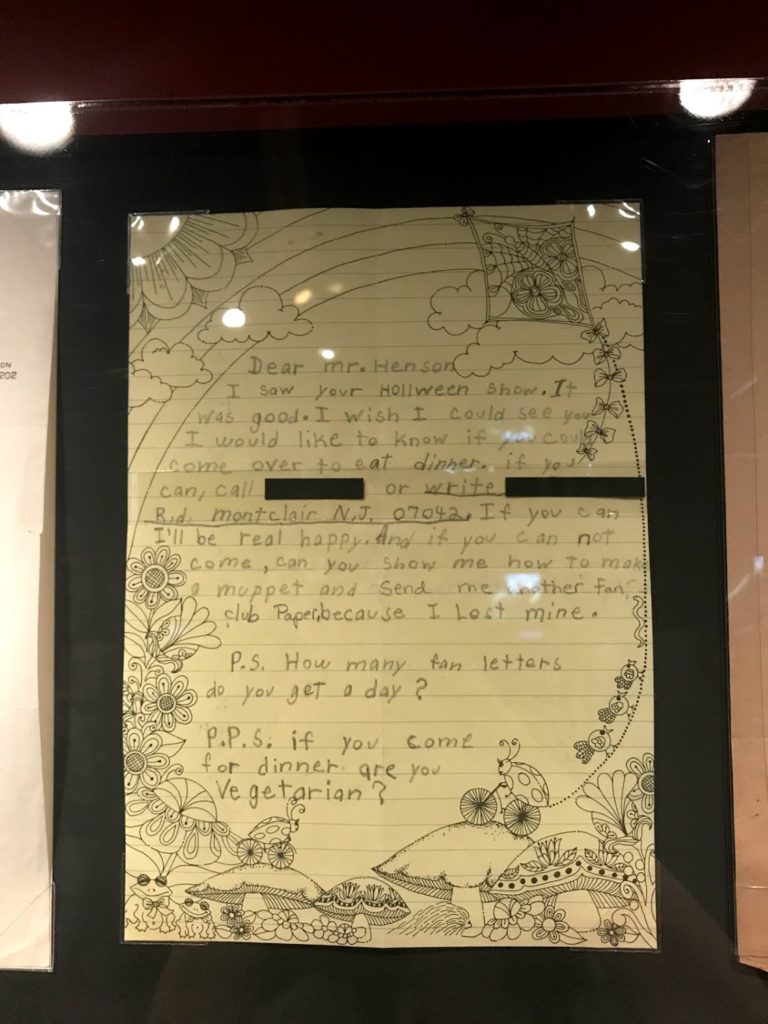 ON
202
Dear mr. Henson
I saw your Hollween show. It
was good. I wish I could see you
I would like to know if you could
come over to eat dinner. if you
can, call or write
R.d. montclair N.J. 07042. If you can
I'll be real happy. And if you can not
come, can you show me how to make
a muppet and send me another fan
club Paper, because I Lost mine.
P.S. How many fan letters
do you get a day?
P.P.S. if you come
for dinner are you
Vegetarian?